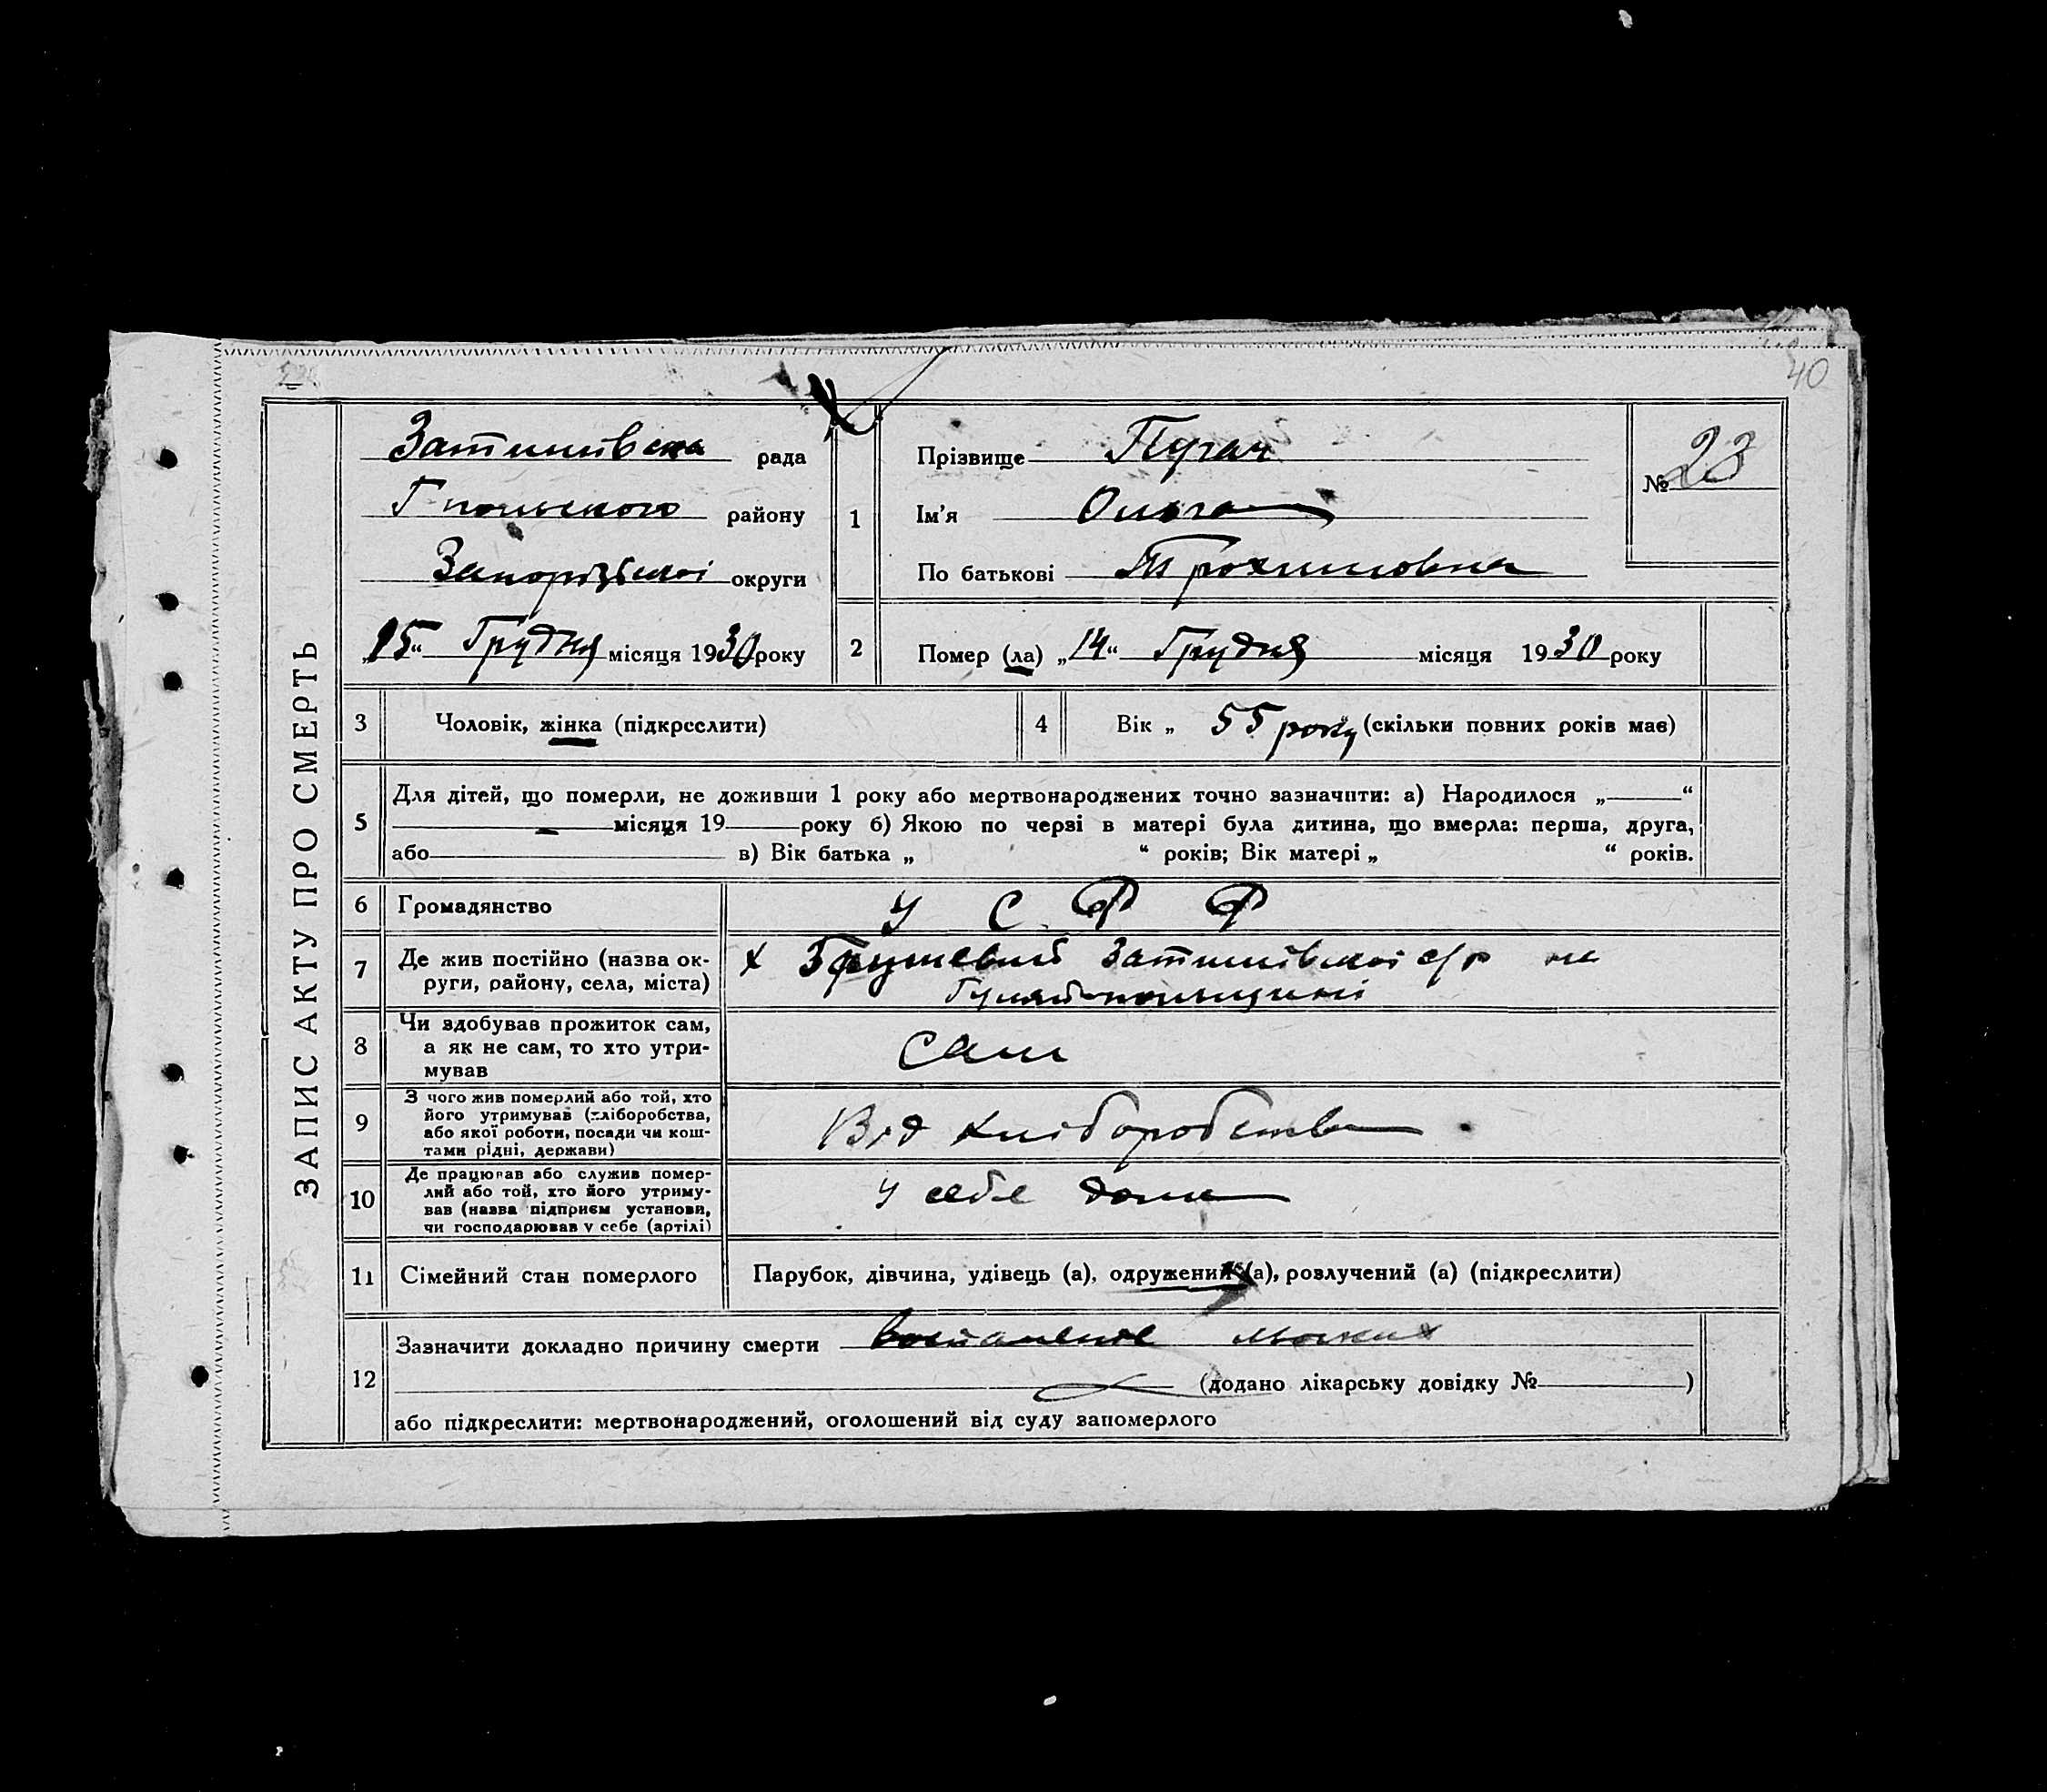 40
ЗАПИС АКТУ ПРО СМЕРТЬ
Затишівска рада
Г-польского району
Запорізькоі округи
„15“ Грудня місяця 1930 року
1
Прізвище Пугач
Ім’я Ольга
По батькові Трохимовна
№ 23
2 Помер (ла) „14“ Грудня місяця 1930 року
3 Чоловік, жінка (підкреслити)
4 Вік „ 55 років (скільки повних років має)
5 Для дітей, що померли, не доживши 1 року або мертвонароджених точно зазначити: а) Народилося „ “
місяця 19 року б) Якою по черзі в матері була дитина, що вмерла: перша, друга,
або в) Вік батька „ “ років; Вік матері „ “ років.
6 Громадянство У С Р Р
7 Де жив постійно (назва ок-
руги, району, села, міста)
х Грушевий Затишівськоі с/р на
Гуляйпольщині
8 Чи здобував прожиток сам,
а як не сам, то хто утри-
мував
Сам
9 З чого жив померлий або той, хто
його утримував (хліборобства,
або якої роботи, посади чи кош-
тами рідні, держави)
Від хліборобства
10 Де працював або служив помер-
лий або той, хто його утриму-
вав (назва підприєм установи,
чи господарював у себе (артілі)
У себе дома
11 Сімейний стан померлого Парубок, дівчина, удівець (а), одружений (а), розлучений (а) (підкреслити)
12 Зазначити докладно причину смерти воспаление
(додано лікарську довідку № )
або підкреслити: мертвонароджений, оголошений від суду запомерлого